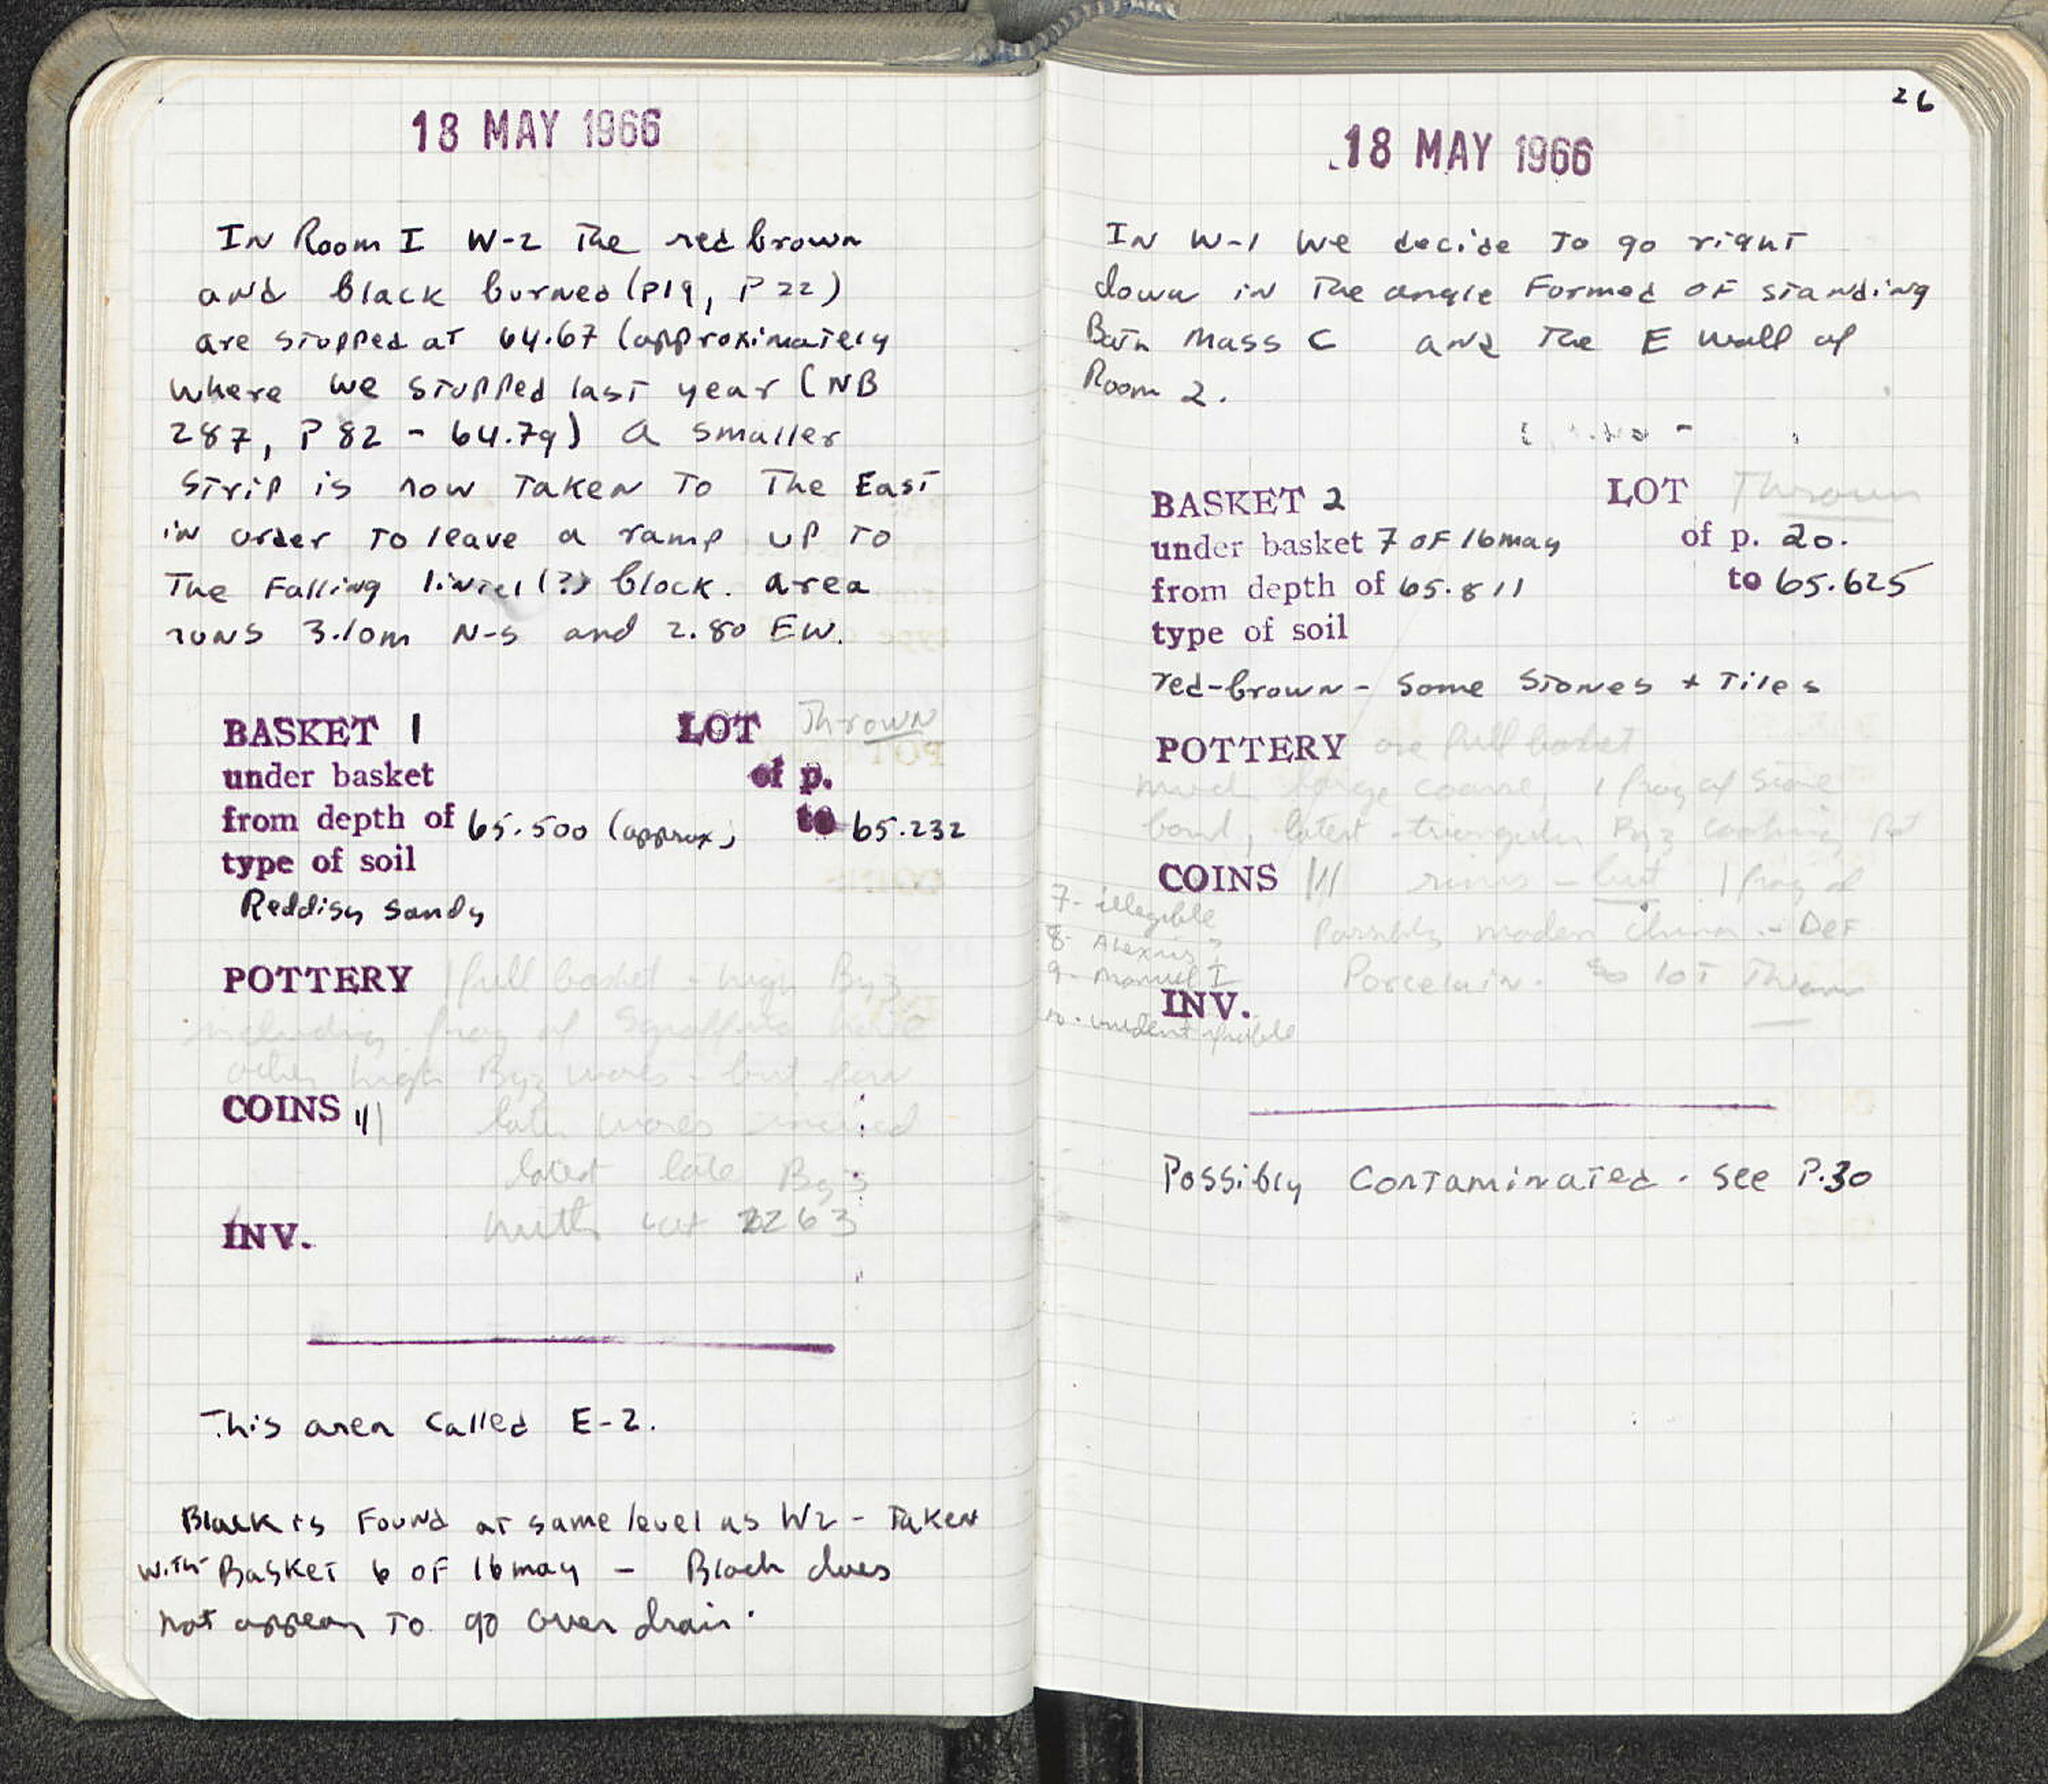 18 MAY 1966
In Room I W-2 The red brown
and black burned (p19, P 22)
are stopped at 64.67 (approximately
where we stopped last year (NB
287, P 82 - 64.79) a smaller
strip is now taken to the East
in order to leave a ramp up to
The Falling lintel (?) block. area
runs 3.10m N-S and 2.80 EW.
BASKET 1 LOT Thrown
under basket of p.
from depth of 65.500 (approx) to 65.232
type of soil
Reddish sandy
POTTERY 1 full basket - high Byz
including frag of Sgraffito
other high Byz wares - but few
COINS 111 late wares
latest late Byz
with lot 2263
INV.
This area called E-2.
Black is found at same level as W2 - Taken
with Basket 6 of 16 may - Black does
not appear to go over drain.
26
18 MAY 1966
In W-1 we decide to go right
down in the angle formed of standing
Bath Mass C and the E wall of
Room 2.
BASKET 2 LOT Thrown
under basket 7 of 16 may of p. 20.
from depth of 65.811 to 65.625
type of soil
red-brown - some stones + tiles
POTTERY one full basket
much large coarse, 1 frag of
bowl, latest triangular Byz cooking pot
COINS 1111 rims - but 1 frag of
7 - illegible
possibly modern china - Def
8 - Alexius ?
9 - Manuel I
Porcelain. so lot Thrown
INV.
10 - unidentifiable
Possibly Contaminated. see P.30